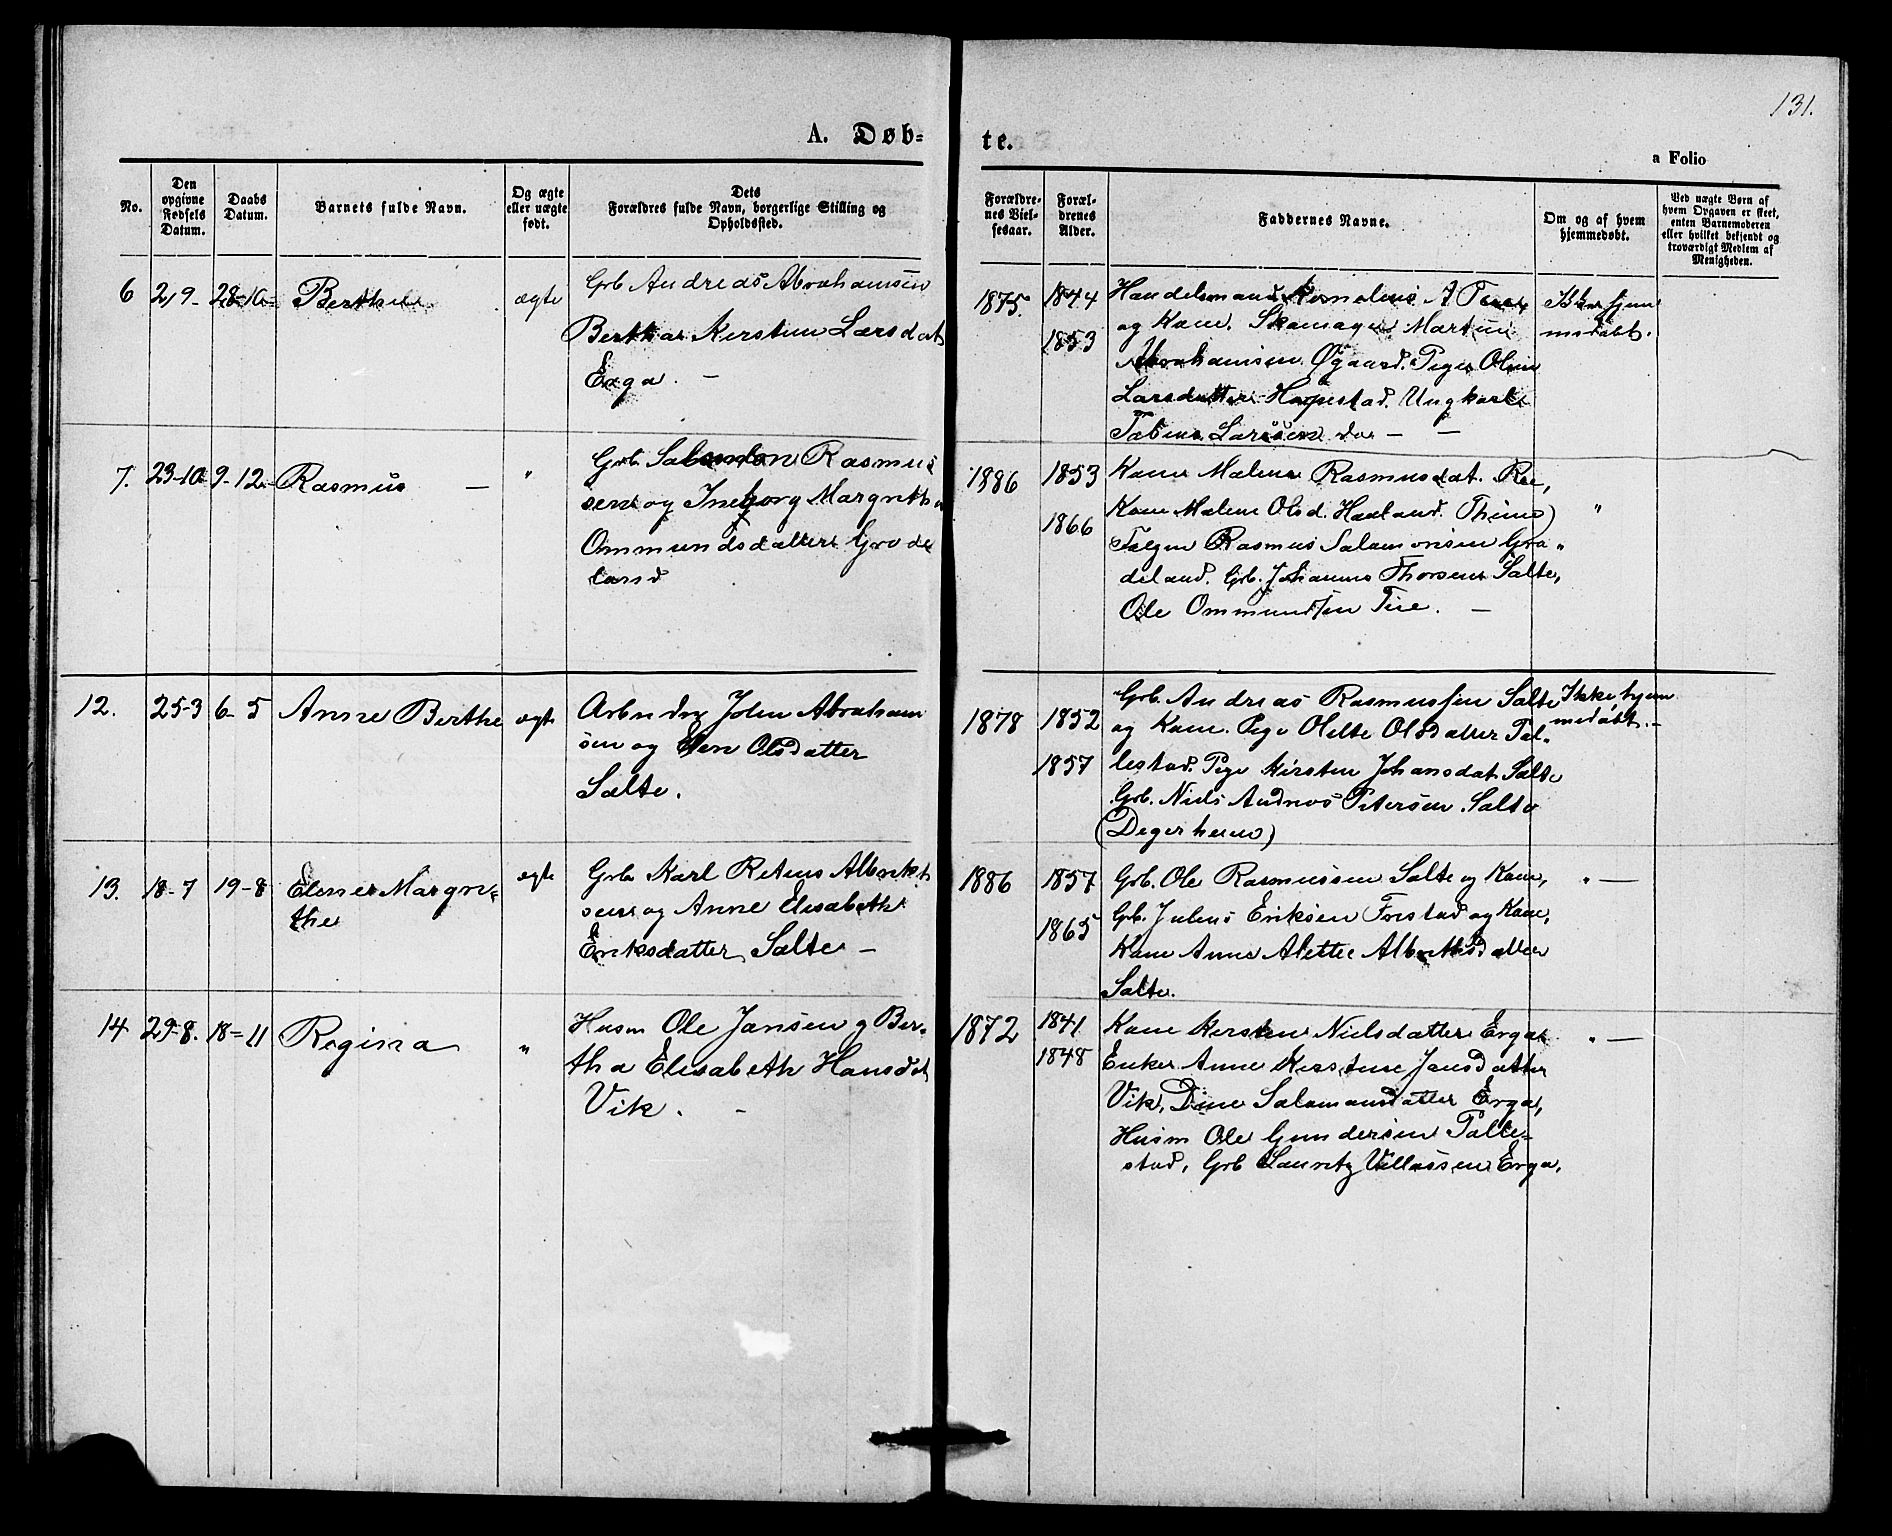 131.
A. Døb-
te.
a Folio
No.
Den
opgivne
Fødsels
Datum.
Daabs
Datum.
Barnets fulde Navn.
Og ægte
eller uægte
født.
Dets
Forældres fulde Navn, borgerlige Stilling og
Opholdssted.
Forældre-
nes Viel-
sesaar.
Foræl-
drenes
Alder.
Faddernes Navne.
Om og af hvem
hjemmedøbt.
Ved uægte Børn af
hvem Opgaven er skeet,
enten Barnemoderen
eller hvilket bekjendt og
troværdigt Medlem af
Menigheden.
6 2/9- 28-10- Berthe ægte Grb Andreas Abrahamsen
Bertha Kerstine Larsdat
Erga. -
1875. 1844 Handelsmand Kornelius A
1853 og Kone. Skomager Martin
Abrahamsen Øgaard. Pige Oline
Larsdatter Haapestad. Ungkarl
Tobias Larssen do - -
Ikke hjem
medøbt.
7. 23-10 9-12- Rasmus - " Grb. Salomon Rasmus
sen og Ingeborg Margretha
Ommundsdatter Grode
land
1886 1853 Kone Malene Rasmusdat. Roe,
1866 Kone Malene Olsd. Haaland. Thime) "
Følgen Rasmus Salamonsen Gro-
deland. Grb. Johannes Thorsen Salte,
Ole Ommundsen Tue. -
12. 25-3 6-5 Anne Berthe ægte Arbeider John Abraham
sen og Elen Olsdatter
Salte.
1878 1852 Grb. Andreas Rasmussen Salte
1857 og Kone. Pige Olette Olsdatter Tal-
lestad. Pige Kirsten Johansdat. Salte
Grb. Niels Andreas Petersen Salte
(Degerhein)
Ikke hjem
medøbt. -
13. 18-7 19-8 Elene Margre-
the
ægte Grb Karl Reinus Albrekt
sen og Anne Elisabeth
Eriksdatter Salte -
1886 1857 Grb. Ole Rasmussen Salte og Kone, " -
1865 Grb. Julius Eriksen Frestad og Kone,
Kone Anne Alettie Albrektsdatter
Salte.
14 29-8. 18-11 Regina " Husm Ole Jansen og Ber-
tha Elisabeth Hansdat
Vik. -
1872 1841. Kone Kersten Nielsdatter Erga " -
1848 Enke Anne Kerstine Jansdatter
Vik, Dine Salamonsdatter Erga,
Husm Ole Gundersen Talle-
stad, Grb Lauritz Villassen Erga.